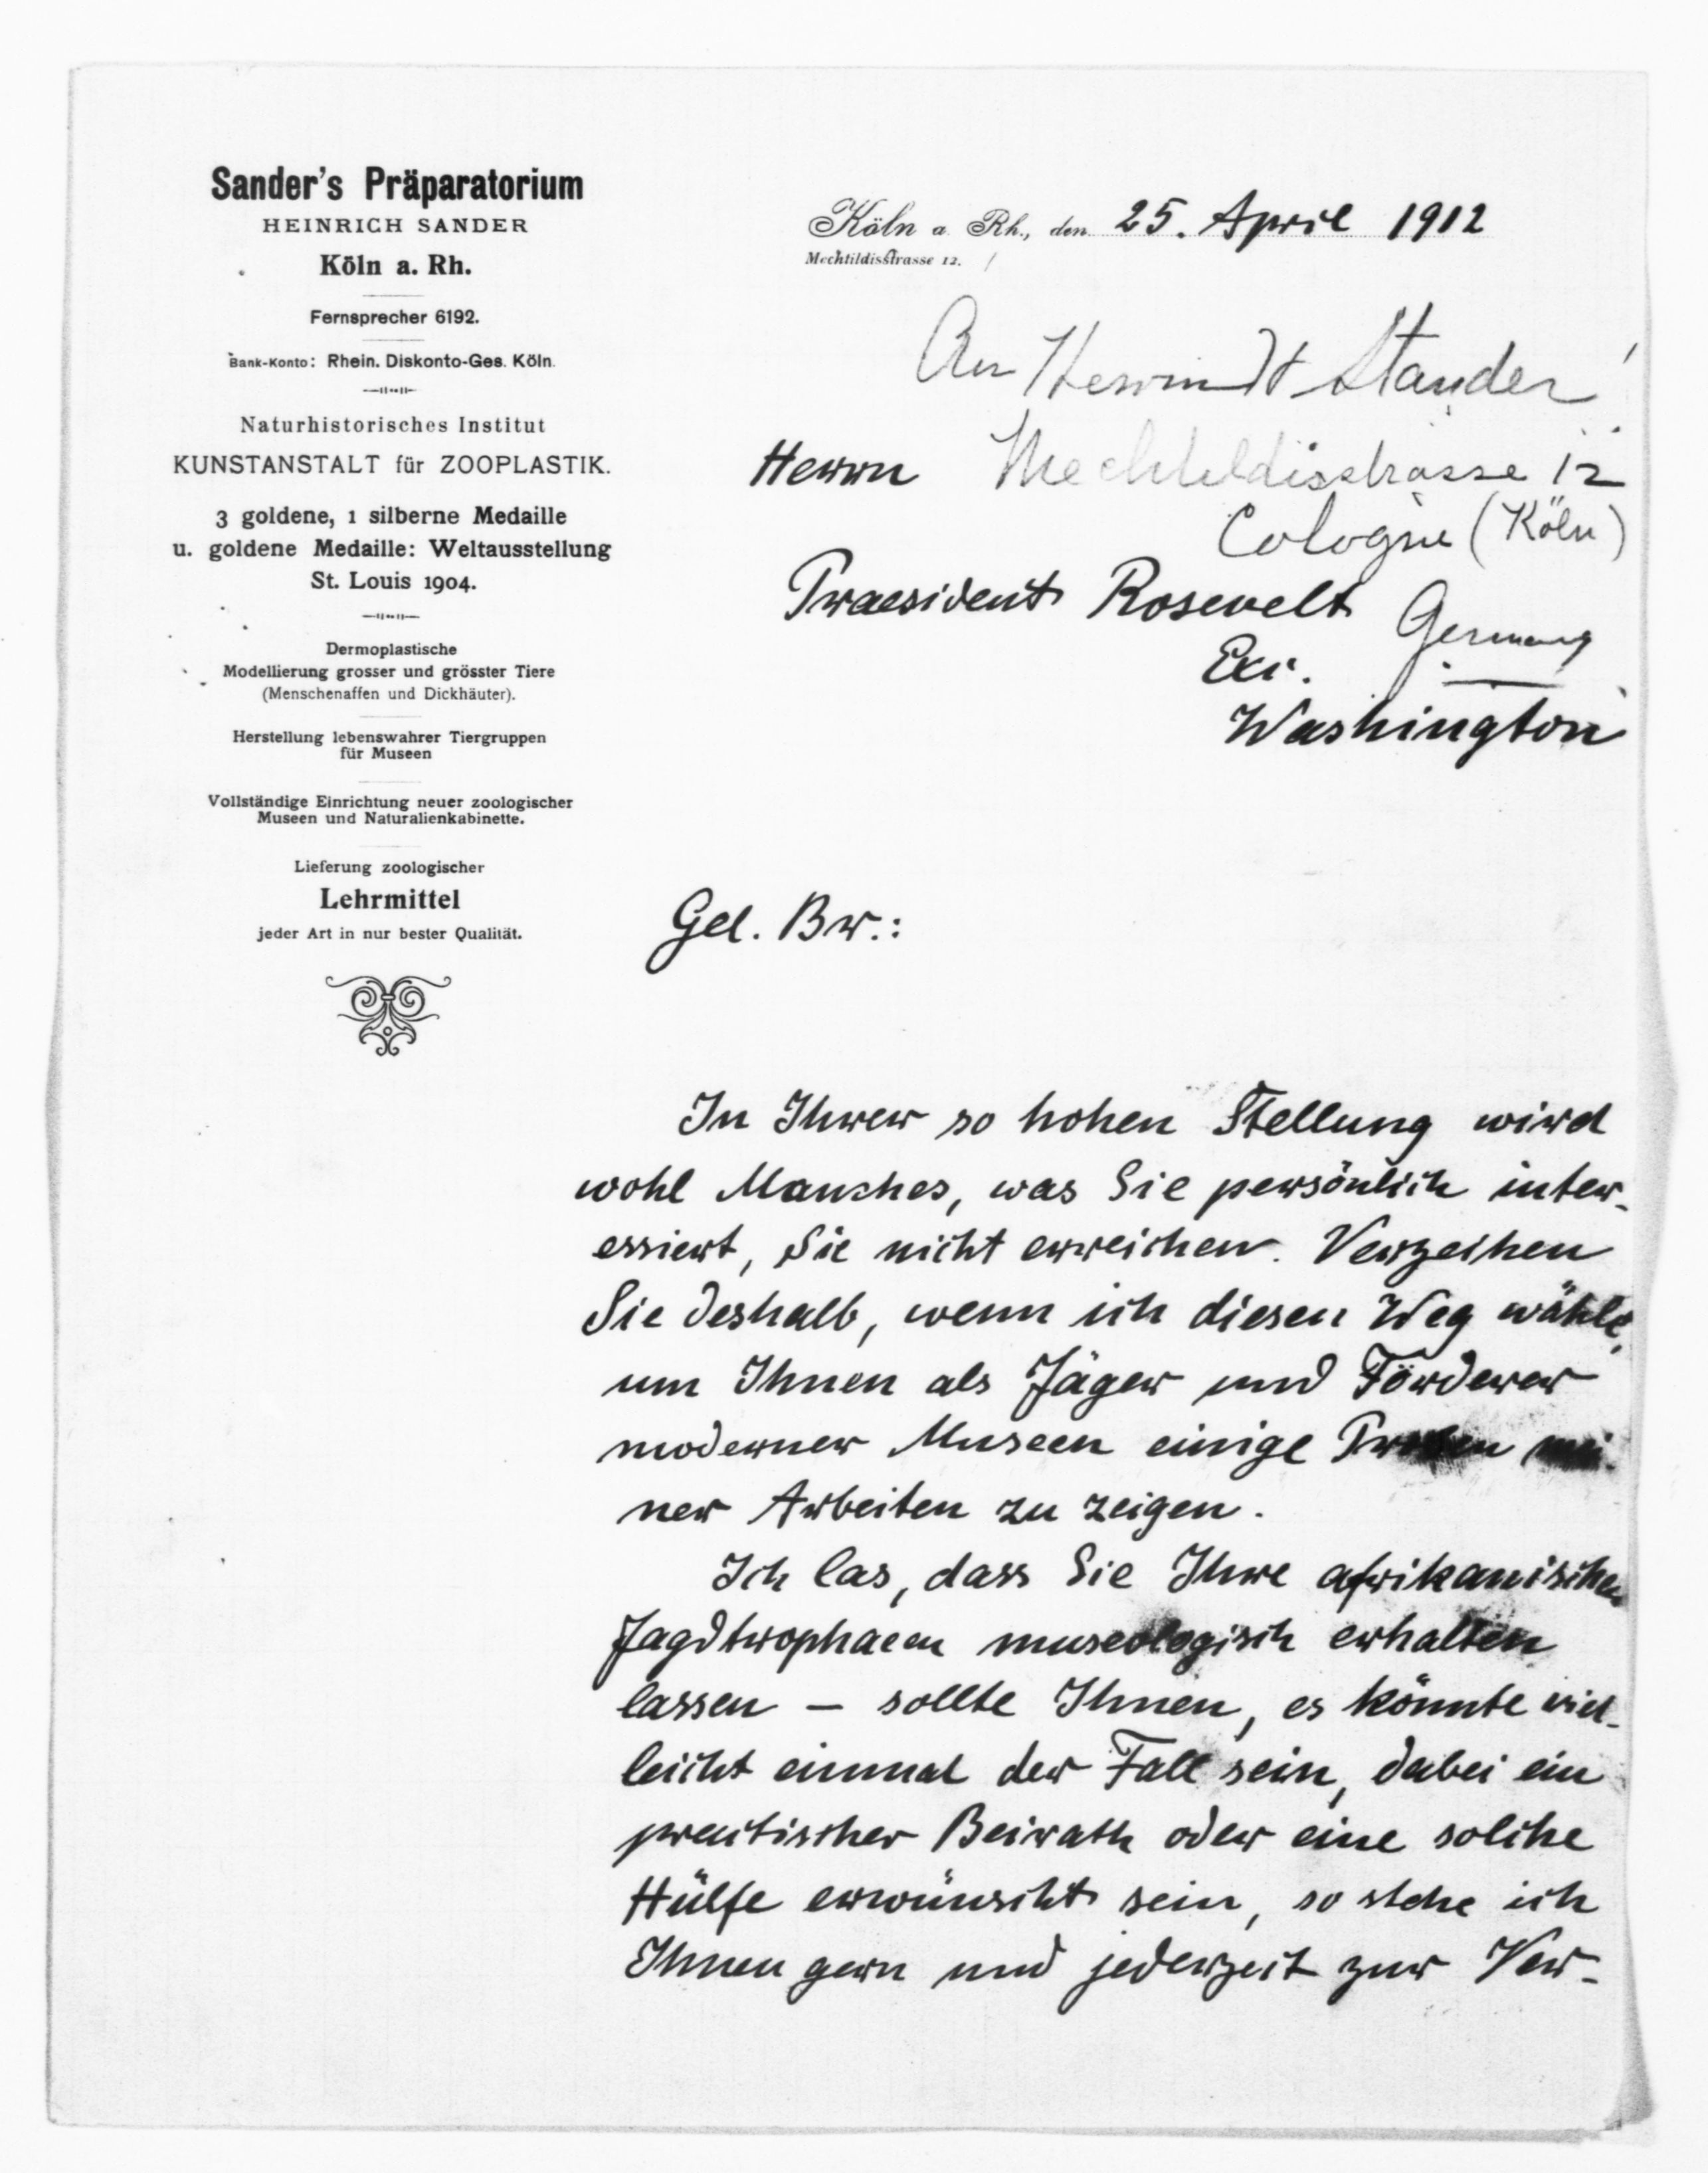 Sander's Präparatorium
HEINRICH SANDER
Köln a. Rh.
Fernsprecher 6192.
Bank-Konto: Rhein. Diskonto-Ges. Köln.
Naturhistorisches Institut
KUNSTANSTALT für ZOOPLASTIK.
3 goldene, 1 silberne Medaille
u. goldene Medaille: Weltausstellung
St. Louis 1904.
Dermoplastische
Modellierung grosser und grösster Tiere
(Menschenaffen und Dickhäuter).
Herstellung lebenswahrer Tiergruppen
für Museen
Vollständige Einrichtung neuer zoologischer
Museen und Naturalienkabinette.
Lieferung zoologischer
Lehrmittel
jeder Art in nur bester Qualität.
Köln a. Rh., den 25. April 1912
Mechtildisstrasse 12.
An
Herrn Mechtildisstrasse 12
Cologne (Köln)
Praesident Rosevelt Germany
Exc.
Washington
Gel. Br.:
In Ihrer so hohen Stellung wird
wohl Manches, was Sie persönlich inter-
essiert, Sie nicht erreichen. Verzeihen
Sie deshalb, wenn ich diesen Weg wähle,
um Ihnen als Jäger und Förderer
moderner Museen einige Proben mei-
ner Arbeiten zu zeigen.
Ich las, dass Sie Ihre afrikanischen
Jagdtrophaeen museologisch erhalten
lassen – sollte Ihnen, es könnte viel-
leicht einmal der Fall sein, dabei ein
practischer Beirath oder eine solche
Hülfe erwünscht sein, so stehe ich
Ihnen gern und jederzeit zur Ver-